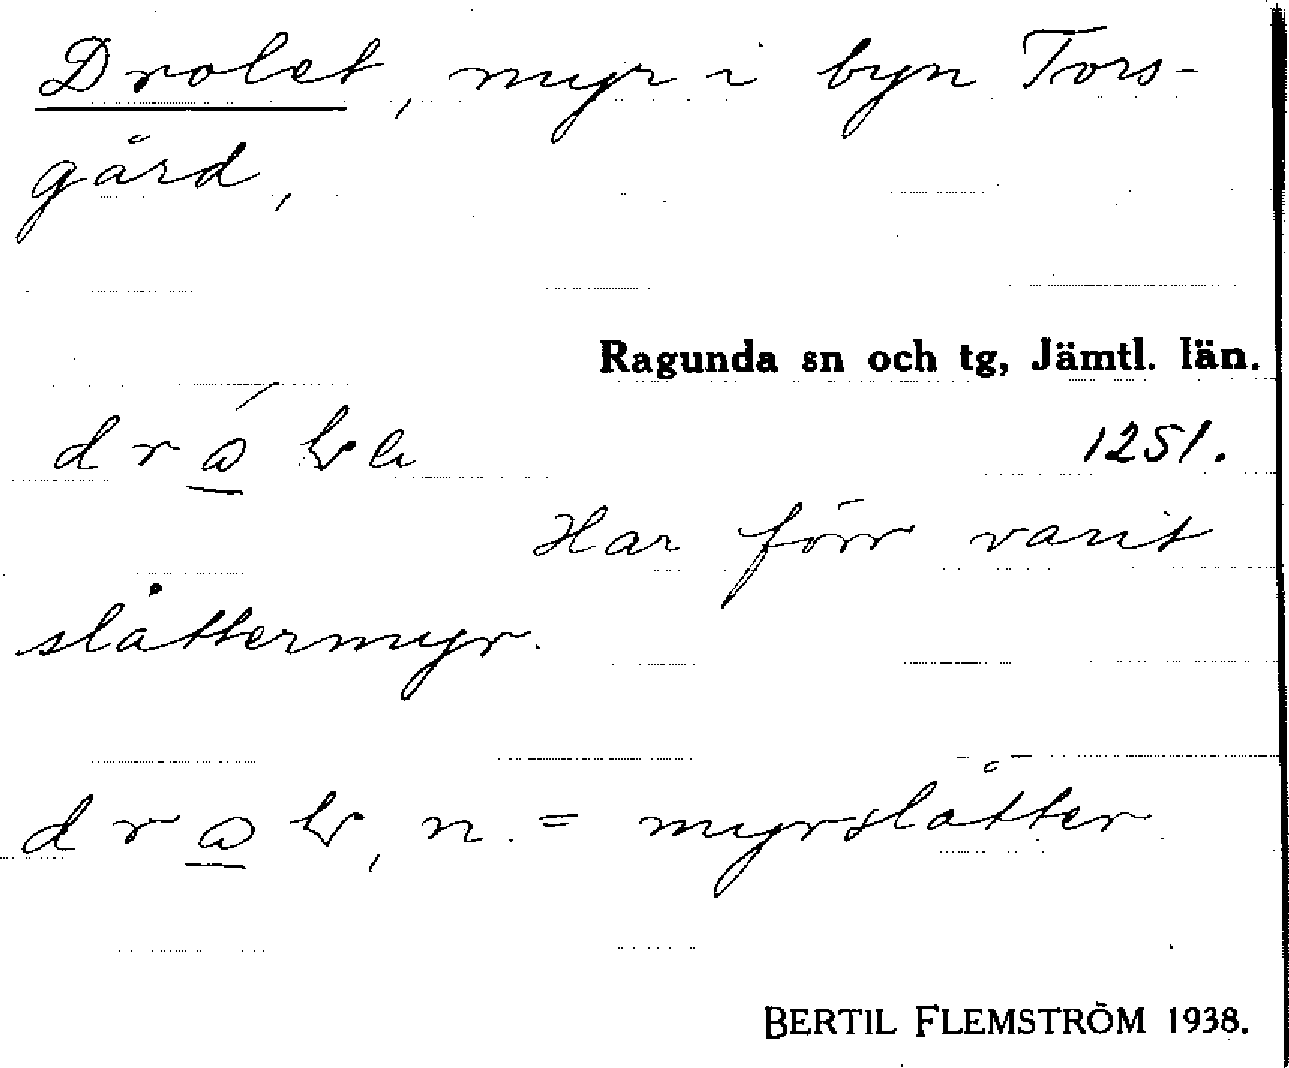 Drolet, myr i byn Tors-
gård,
Ragunda sn och tg, Jämtl. län.
1251.
Har förr varit
slåttermyr.
n. = myrslåtter
BERTIL FLEMSTRÖM 1938.